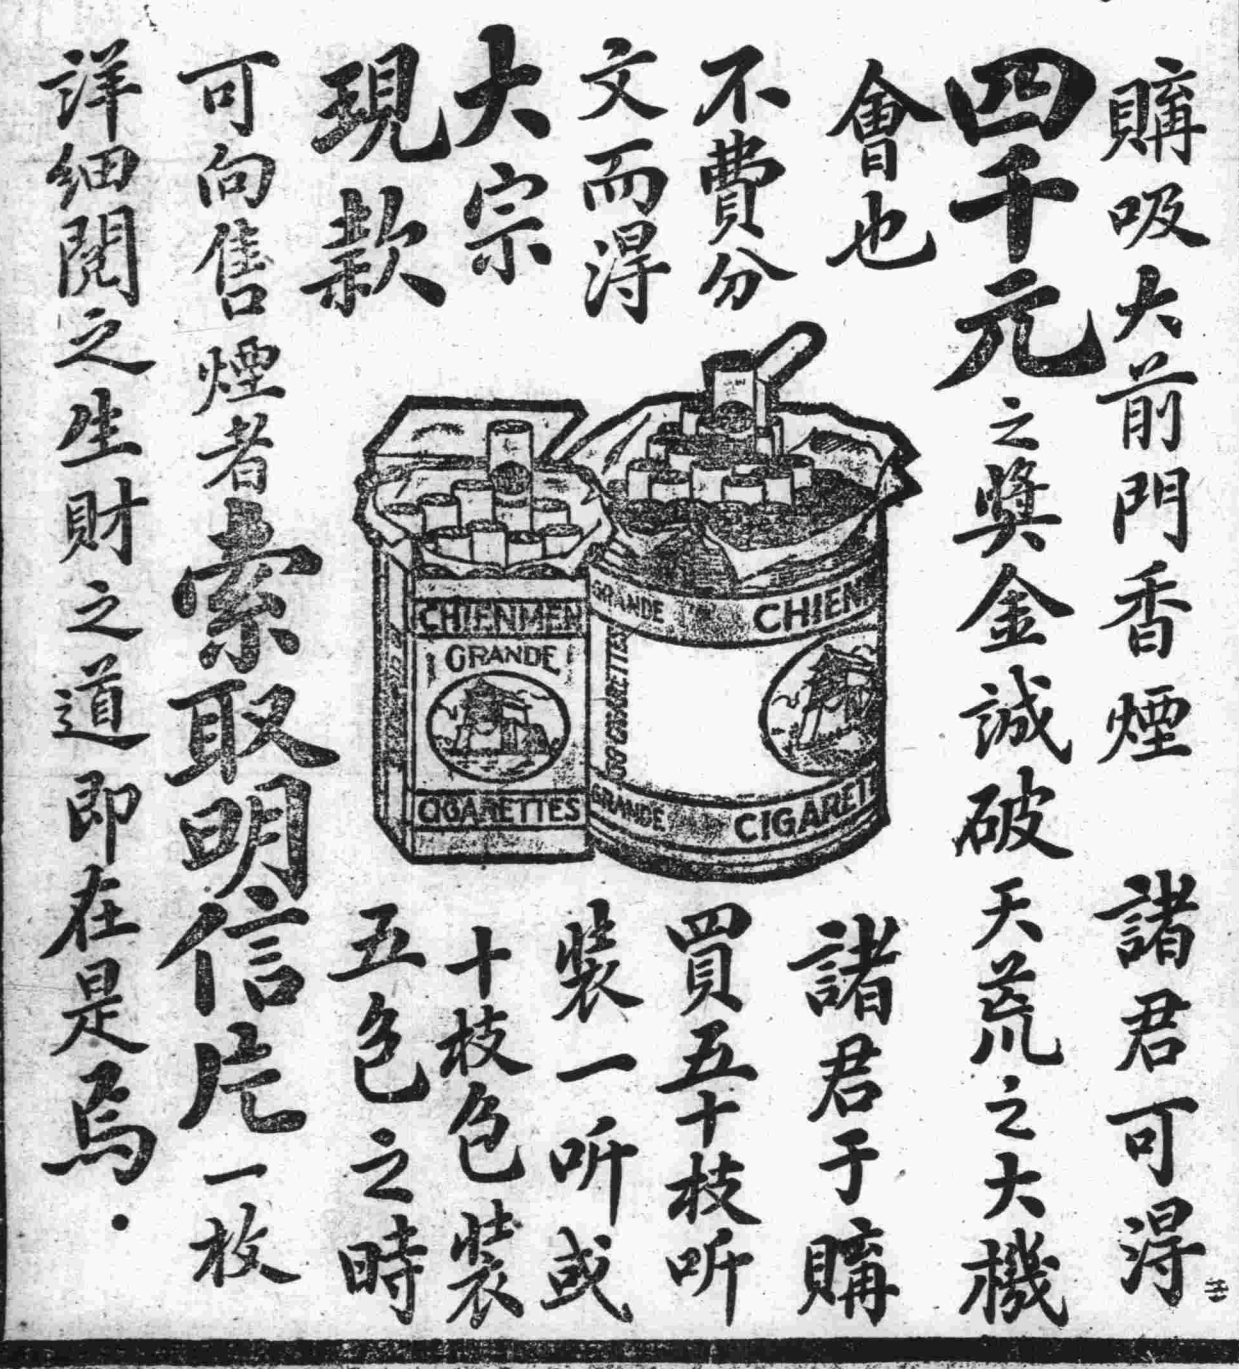 購吸大前門香煙 諸君可得
四千元之獎金誠破天荒之大機
會也
不費分
文而得
大宗
現款
諸君于購
買五十枝听
裝一听或
十枝色裝
五色之時
可向售煙者索取明信片一枚
詳細閱之生財之道即在是焉.
CHIENMEN
GRANDE
CIGARETTES
GRANDE CHIENM
50 CIGARETTES
GRANDE CIGARETT